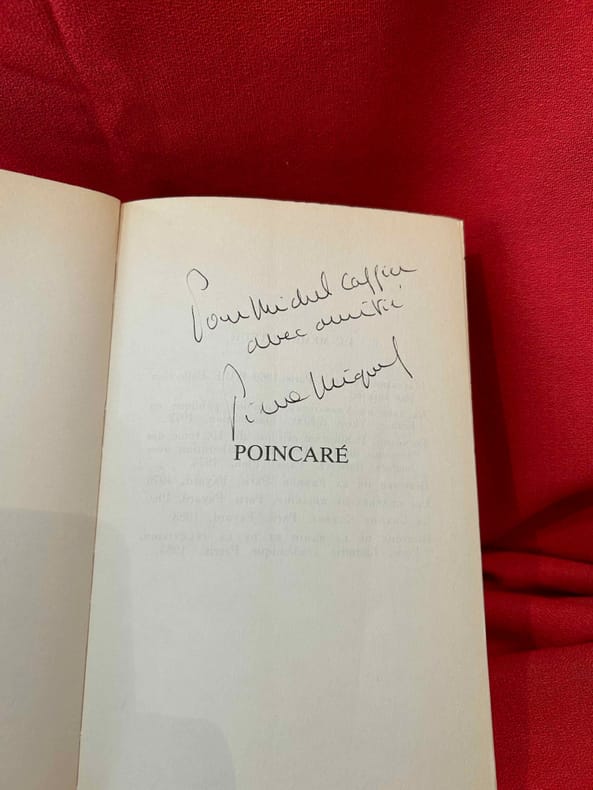 Pour Michel Caffier
avec amitié
Pierre Miquel
POINCARÉ